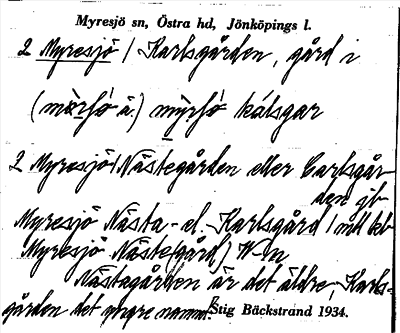 Myresjö sn, Östra hd, Jönköpings l.
2 Myresjö / Karlsgården, gård i
(mỳrʃö ä.) mỳrʃö kálsgar
2 Myresjö / Nästegården eller Carlsgår
den jb
Myresjö Nästa- el. Karlsgård / mtl kb
Myresjö Näste(gård) W-n
Nästagården är det äldre, Karls-
gården det yngre namnet.
Stig Bäckstrand 1934.